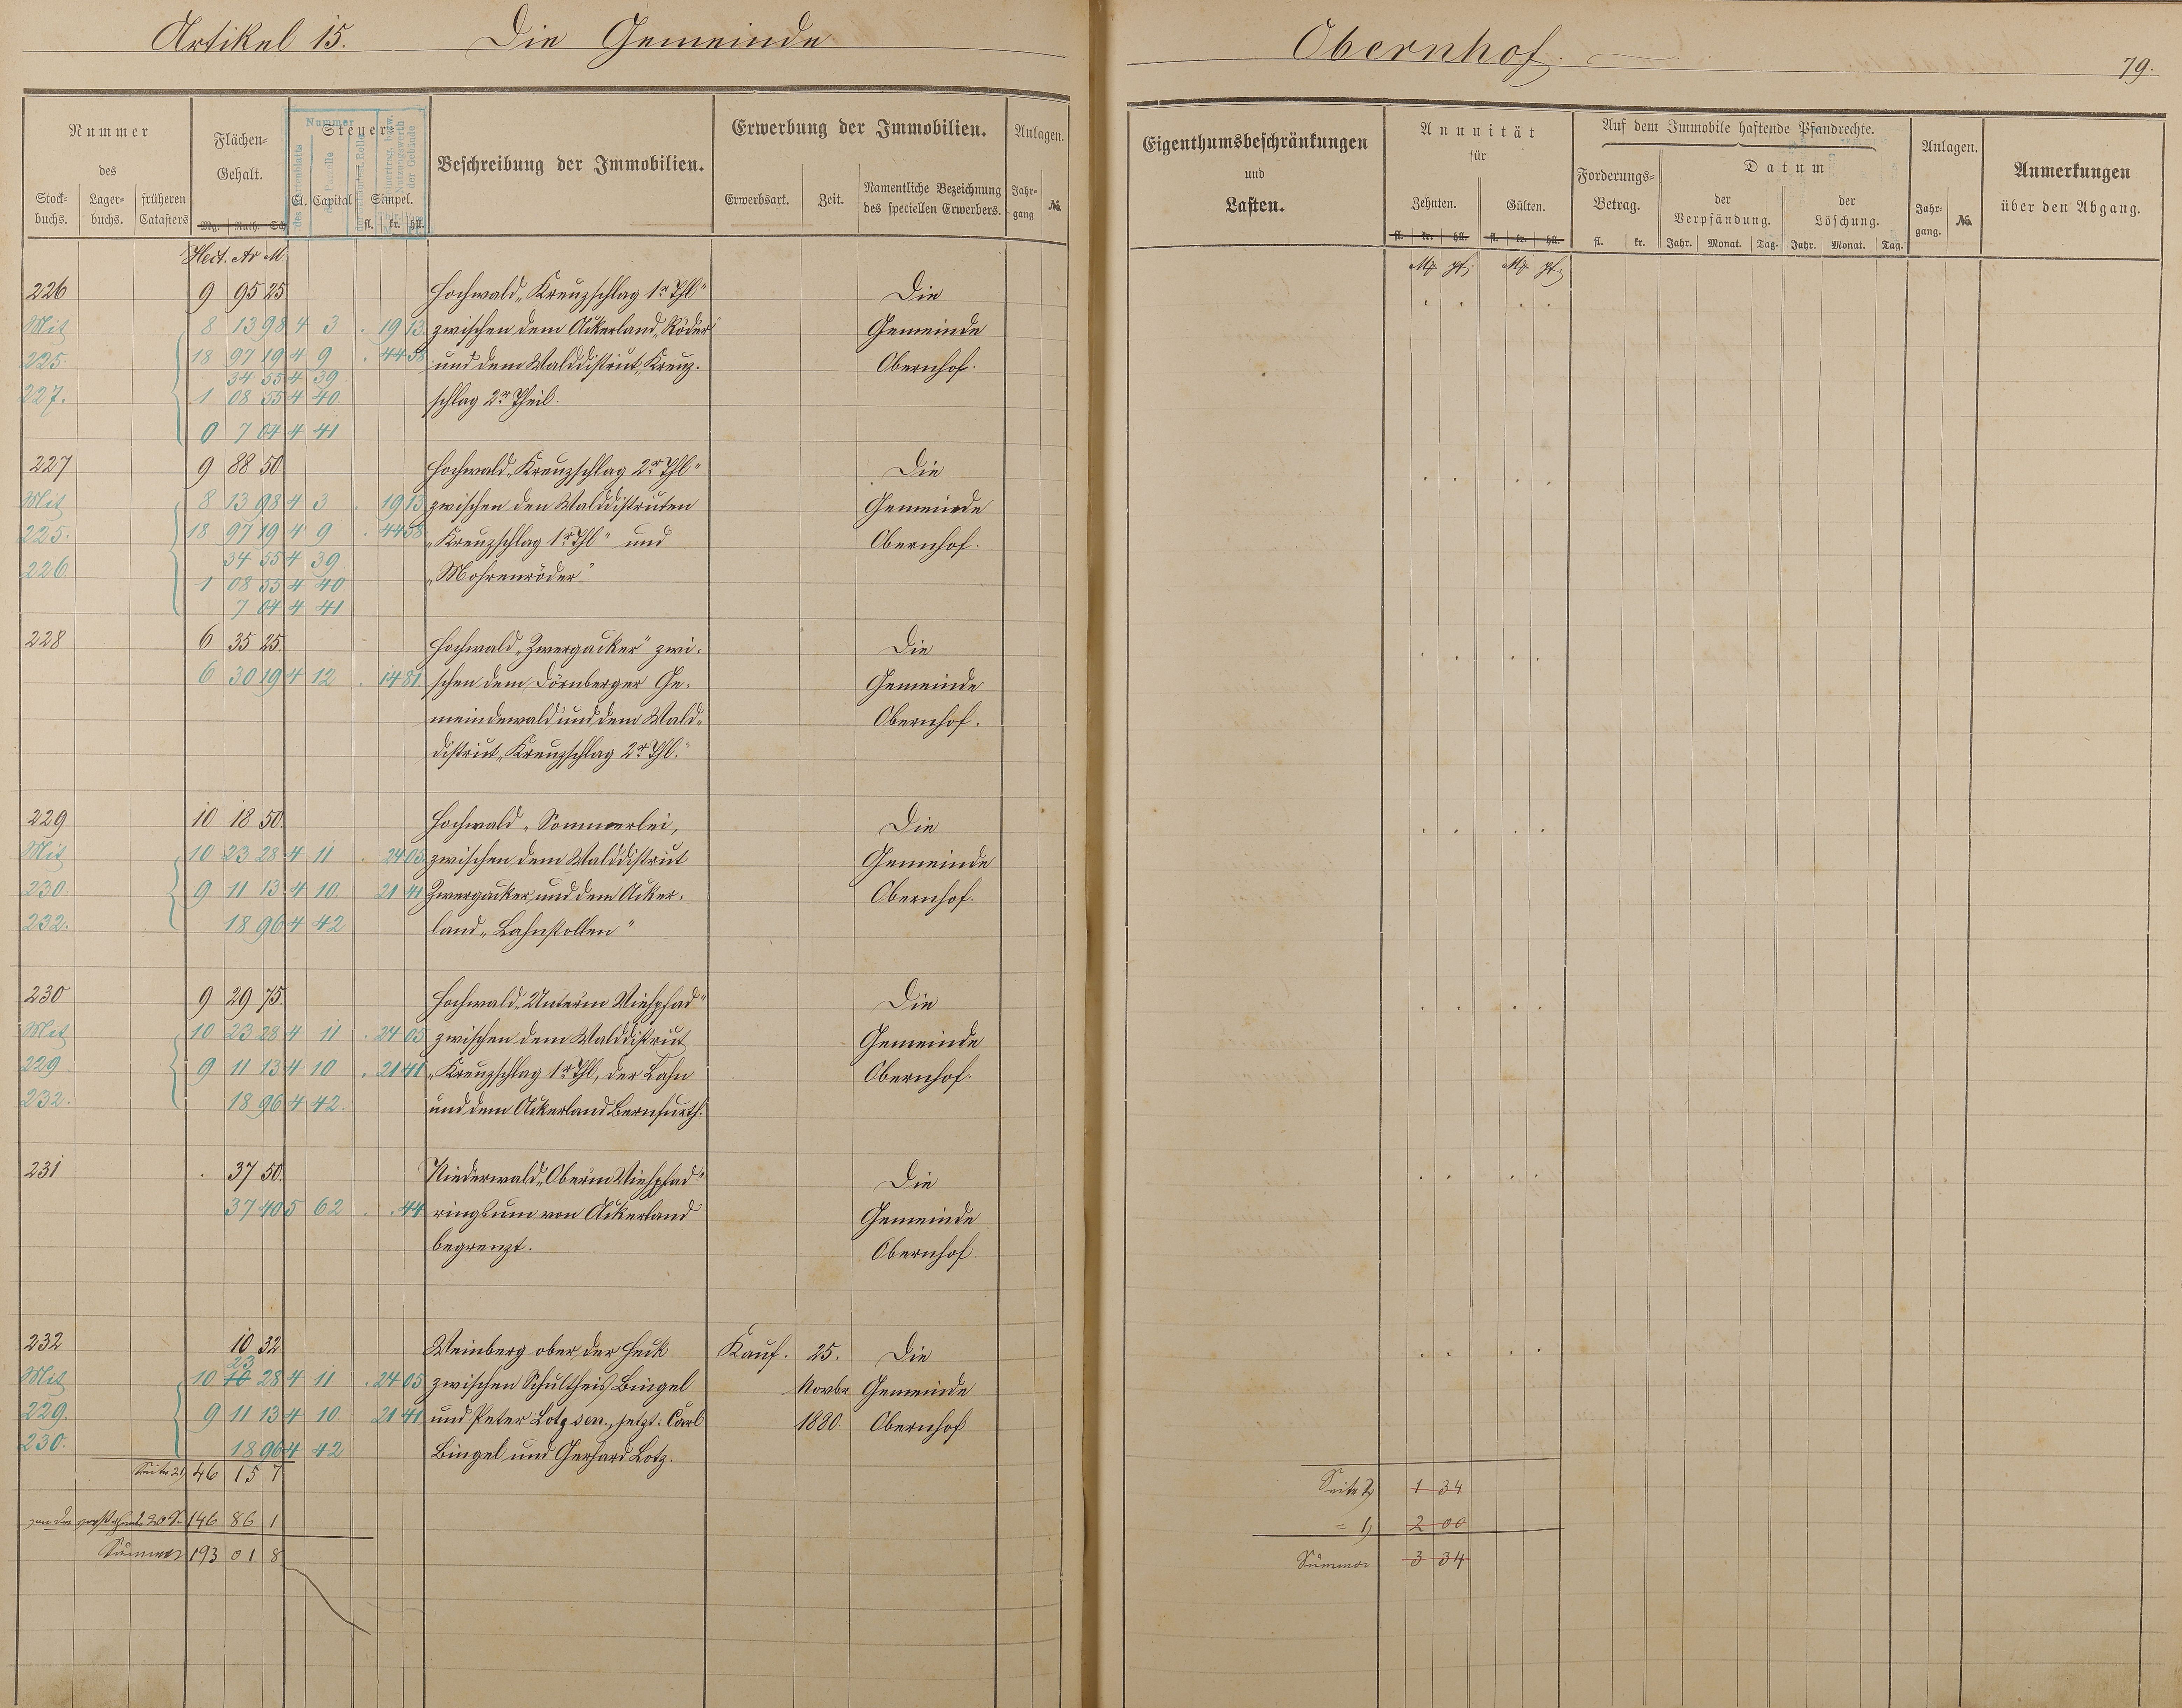 Artikel 15. Die Gemeinde
Obernhof.
79.
Nummer des
Stockbuchs. Lagerbuchs. früheren Catasters
Flächen-Gehalt.
Mg. Ruth. Sch
Steuer-
Cl. Capital Simpel.
fl. kr. hll.
Nummer
Beschreibung der Immobilien.
Erwerbung der Immobilien.
Erwerbsart. Zeit. Namentliche Bezeichnung des speciellen Erwerbers.
Anlagen.
Jahrgang No.
Eigenthumsbeschränkungen
und
Lasten.
Annuität
für
Zehnten. Gülten.
fl. kr. hll. fl. kr. hll.
Auf dem Immobile haftende Pfandrechte.
Forderungs-Betrag.
fl. kr.
Datum
der Verpfändung. der Löschung.
Jahr. Monat. Tag. Jahr. Monat. Tag.
Anlagen.
Jahrgang. No.
Anmerkungen
über den Abgang.
Hect. Ar M.
Mk. pf. Mk. pf.
226 9 95 25 Hochwald „Kreuzschlag 1r Thl" Die
Mit 8 13 98 4 3 . 19 13 zwischen dem Ackerland „Röder" Gemeinde
225. 18 97 19 4 9 . 44 58 und dem Walddistrict „Kreuz- Obernhof.
34 55 4 39
227. 1 08 55 4 40. schlag 2r Theil.
0 7 04 4 41
227 9 88 50 Hochwald „Kreuzschlag 2r Thl" Die
Mit 8 13 98 4 3 . 19 13 zwischen den Walddistricten Gemeinde
225. 18 97 19 4 9 . 44 58 „Kreuzschlag 1r Thl" und Obernhof.
34 55 4 39.
226. 1 08 55 4 40 „Mohrenröder"
7 04 4 41
228 6 35 25. Hochwald „Zwergacker" zwi- Die
6 30 19 4 12 . 14 81 schen dem Dörnberger Ge- Gemeinde
meindewald und dem Wald- Obernhof.
district „Kreuzschlag 2r Thl."
229 10 18 50. Hochwald „Sommerlei, Die
Mit 10 23 28 4 11 . 24 05 zwischen dem Walddistrict Gemeinde
230. 9 11 13 4 10. 21 41 Zwergacker und dem Acker- Obernhof.
232. 18 96 4 42 land „Lahnstollen"
230 9 29 75. Hochwald „Unterm Viehpfad" Die
Mit 10 23 28 4 11 . 24 05 zwischen dem Walddistrict Gemeinde
229 9 11 13 4 10 . 21 41 „Kreuzschlag 1r Thl, der Lahn Obernhof.
232. 18 96 4 42. und dem Ackerland Bernfurth.
231 . 37 50. Niederwald „Oberm Viehpfad" Die
37 40 5 62 . . 44 ringsum von Ackerland Gemeinde
begrenzt. Obernhof
232 10 32 Weinberg ober der Heck Kauf. 25. Die
23
Mit 10 10 28 4 11 . 24 05 zwischen Schultheis Bingel Novbr Gemeinde
229. 9 11 13 4 10 21 41 und Peter Lotz sen., jetzt: Carl 1880. Obernhof
230. 18 96 4 42 Bingel und Gerhard Lotz.
Seite 2) 46 15 7
146 86 1
Summa 193 01 8
Seite 2) 1 34
= 1) 2 00
Summa 3 34